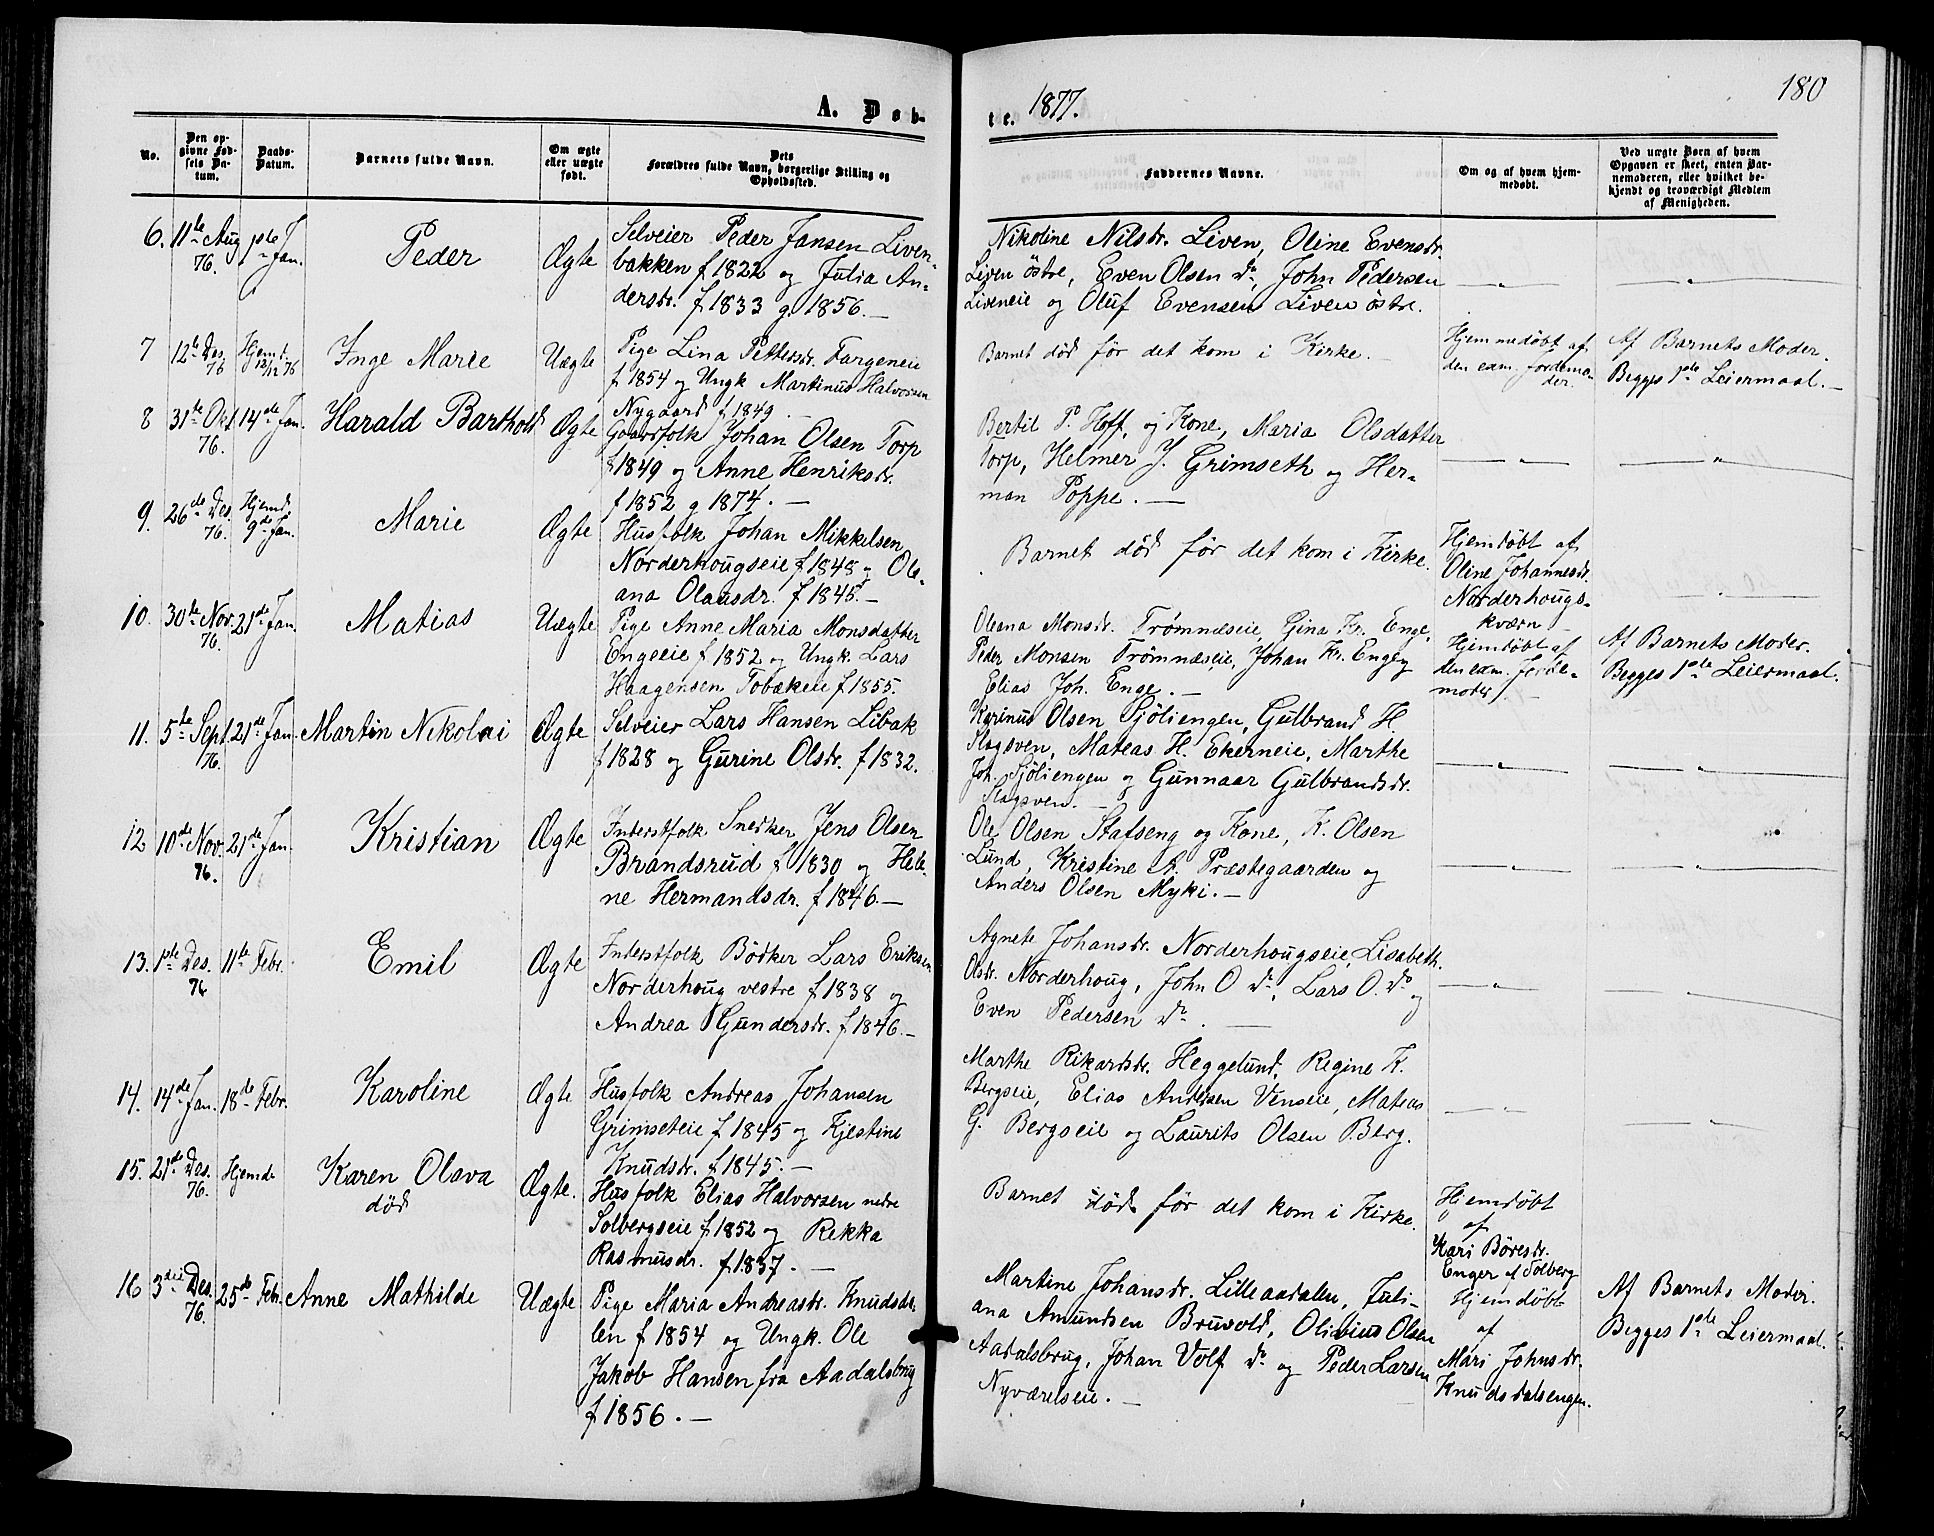 180
A. Døb-
te. 1877.
No.
Den op-
givne Fød-
sels Da-
tum.
Daabs-
Datum.
Barnets fulde Navn.
Om ægte
eller uægte
født.
Dets
Forældres fulde Navn, borgerlige Stilling og
Opholdssted.
Faddernes Navne.
Om og af hvem hjem-
medøbt.
Ved uægte Børn af hvem
Opgaven er skeet, enten Bar-
nemoderen, eller hvilket be-
kjendt og troværdigt Medlem
af Menigheden.
6. 11te Aug 76. 1ste Jan. Peder Ægte
Selveier Peder Jansen Liven-
bakken f. 1822 og Julia An-
dersdr. f 1833 g. 1856.—
Nikoline Nilsdr. Liven, Oline Evensdr.
Liven östre, Even Olsen do, John Pedersen
Liveneie og Oluf Evensen Liven östre.
7 12te Des 76 Hjemd. 12/12 76 Inge Marie Uægte
Pige Lina Pettersdr. Fargeneie
f 1854 og Ungk Martinus Halvorsen
Nygaard f 1849.—
Barnet död för det kom i Kirke.—
Hjemmedöbt af
den exam. Jordemo-
der.
Af Barnets Moder.
Begges 1ste Leiermaal.—
8 31te Okt 76. 14de Jan. Harald Barthold Ægte
Gaardfolk Johan Olsen Torp
f 1849 og Anne Henriksdr.
f 1852 g 1874.—
Bertil P. Hoff, og Kone, Maria Olsdatter
Torp, Helmer J. Grimseth og Her-
man Poppe.—
9. 26de Des. 76. Hjemd. 9de Jan. Marie Ægte
Husfolk Johan Mikkelsen
Norderhougseie f 1848 og Ole-
ana Olausdr. f 1845.—
Barnet död för det kom i Kirke.
Hjemdöbt af
Oline Johannesdr.
Norderhougs-
kværn
10. 30te Nov. 76. 21de Jan. Matias Uægte
Pige Anne Maria Monsdatter
Engeeie f 1852 og Ungk. Lars
Haagensen Tobakeie f 1855.
Oleana Monsdr. Trömnæseie, Gina Kr. Enge,
Peder Monsen Trömnæseie, Johan Kr. Enge og
Elias Joh. Enge.—
Hjemdöbt af
den exam. Jorde-
moder.
Af Barnets Moder.
Begges 1ste Leiermaal.
11. 5te Sept. 76. 21de Jan. Martin Nikolai Ægte
Selveier Lars Hansen Libak
f 1828 og Gurine Olsdr. f 1832.
Karinus Olsen Sjöliengen, Gulbrand H.
Slagsven, Mateas H. Ekerneie, Marthe
Joh. Sjöliengen og Gunnaar Gulbrandsdr.
Slagsven.—
12 10de Nov. 76. 21de Jan. Kristian Ægte
Inderstfolk Snedker Jens Olsen
Brandsrud f 1830 og Hele-
ne Hermandsdr. f 1846.—
Ole Olsen Stafseng og Kone, K. Olsen
Lund, Kristine A. Præstegaarden og
Anders Olsen Myki.—
13. 1ste Des. 76 11te Febr. Emil Ægte
Inderstfolk Bödker Lars Eriksen
Norderhoug vestre f 1838 og
Andrea Gundersdr. f 1846.—
Agnete Johansdr. Norderhougseie, Lisabeth
Olsdr. Norderhoug, John O do, Lars O. do og
Even Pedersen do.—
14. 14de Jan. 18de Febr. Karoline Ægte
Husfolk Andreas Johansen
Grimseteie f 1845 og Kjestine
Knudsdr. f 1845.—
Marthe Rikardsdr. Heggelund, Regine K.
Bergseie, Elias Andersen Venseie, Mateas
G. Bergseie og Laurits Olsen Berg.
15. 21de Des. 76. Hjemdö Karen Olava Ægte.
död
Husfolk Elias Halvorsen nedre
Solbergseie f 1852 og Rekka
Rasmusdr. f 1837.—
Barnet död för det kom i Kirke.
Hjemdöbt
af
Kari Böresdr.
Enger af Solberg
16 3die Des. 76. 25de Febr. Anne Mathilde Uægte
Pige Maria Andreasdr. Knudsda-
len f 1854 og Ungk. Ole
Jakob Hansen fra Aadalsbrug
f 1856.—
Martine Johansdr. Lilleaadalen, Juli-
ana Amundsen Bruvold, Olivius Olsen
Aadalsbrug, Johan Volf do og Peder Larsen
Nyværelseie.—
Hjemdöbt
af
Mari Johnsdr.
Knudsdalsengen.
Af Barnets Moder.
Begges 1ste Leiermaal.